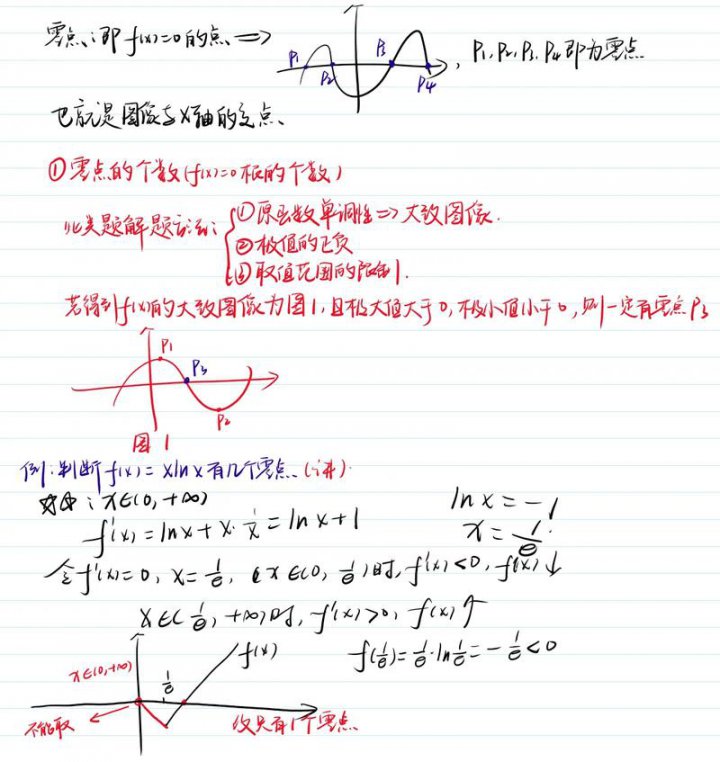 零点:即f(x)=0的点 => P1 P2 P3 P4 , P1, P2, P3, P4即为零点
也就是图像与X轴的交点、
①零点的个数(f(x)=0根的个数)
此类题解题方法: ①原函数单调性=>大致图像.
②极值的正负
③取值范围的限制.
若得到f(x)的大致图像为图1,且极大值大于0,极小值小于0,则一定有零点P3
P1 P3
P2
图1
例:判断f(x)=xlnx有几个零点.(讲)
x∈(0,+∞) lnx=-1
f'(x)=lnx+x·1/x=lnx+1 x=1/e.
令f'(x)=0, x=1/e, x∈(0, 1/e)时, f'(x)<0, f(x)↓
x∈(1/e, +∞)时, f'(x)>0, f(x)↑
f(x) f(1/e)=1/e·ln1/e=-1/e<0
x∈(0,+∞) 1/e
不能取 仅只有1个零点